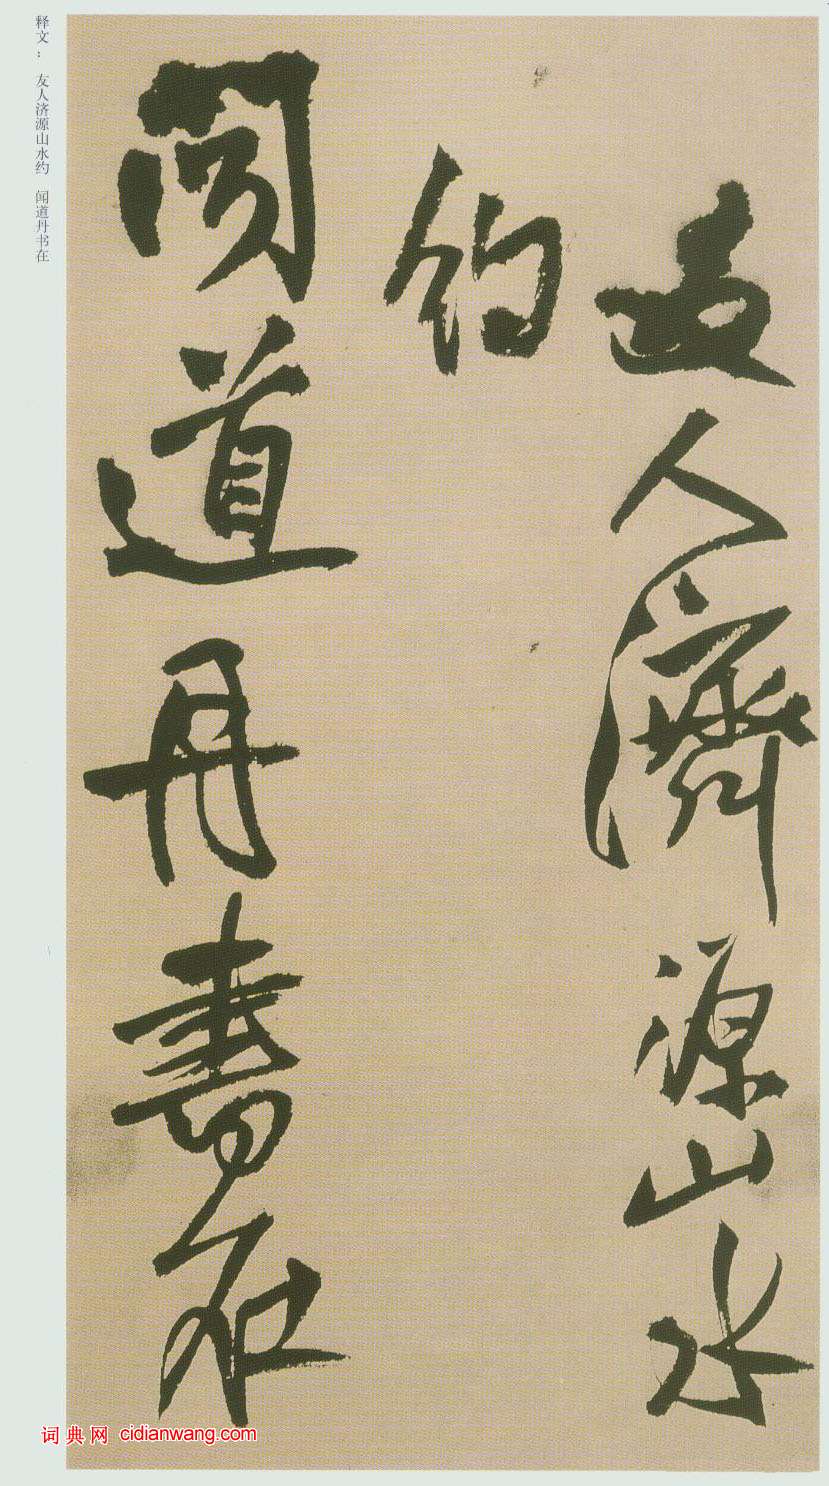 友人濟源山水
約
聞道丹書在
释文： 友人济源山水约 闻道丹书在
词典网 cidianwang.com